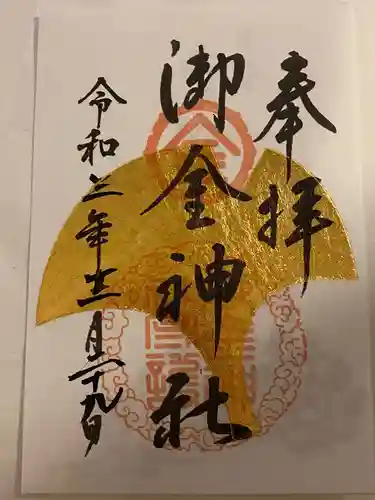 奉拝
御金神社
令和三年十二月二十九日